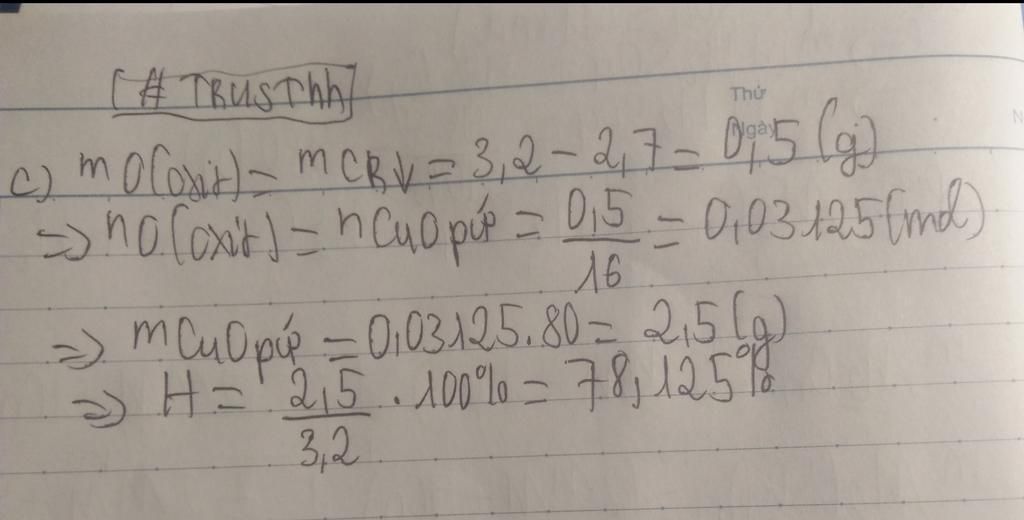 [# TRUSThh]
Thứ
Ngày
c) mO(oxit) = mCRV = 3,2 - 2,7 = 0,5 (g)
=> nO(oxit) = nCuO pứ = 0,5/16 = 0,03125 (mol)
=> mCuO pứ = 0,03125.80 = 2,5 (g)
=> H = 2,5/3,2 . 100% = 78,125%